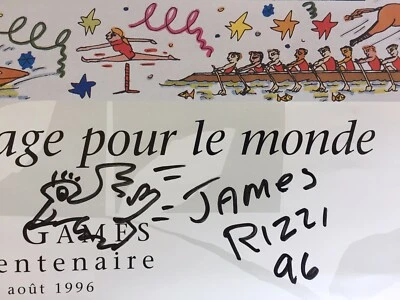 age pour le monde
JAMES
RIZZI
96
GAMES
entenaire
août 1996